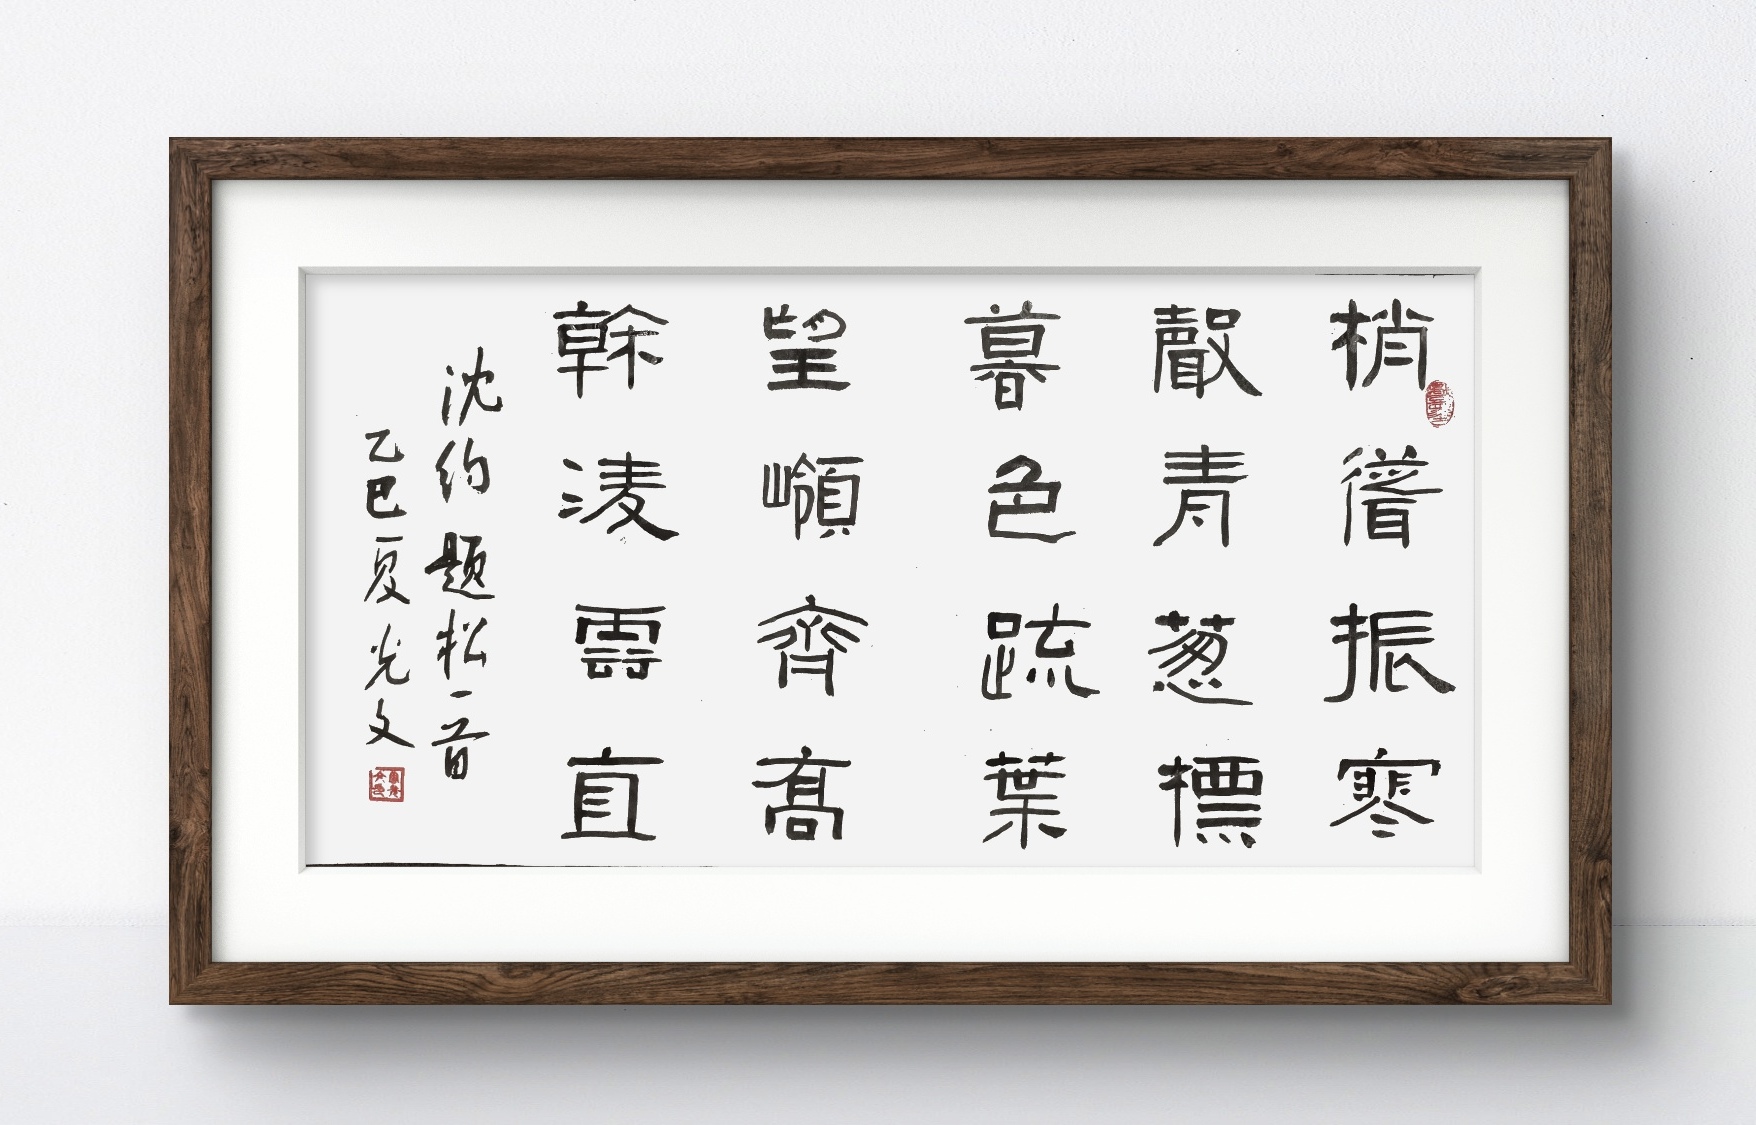 梢聳振寒
聲青葱標
暮色疏葉
望嶺齊喬
幹淩雲直
沈约题松一首
乙巳夏光文